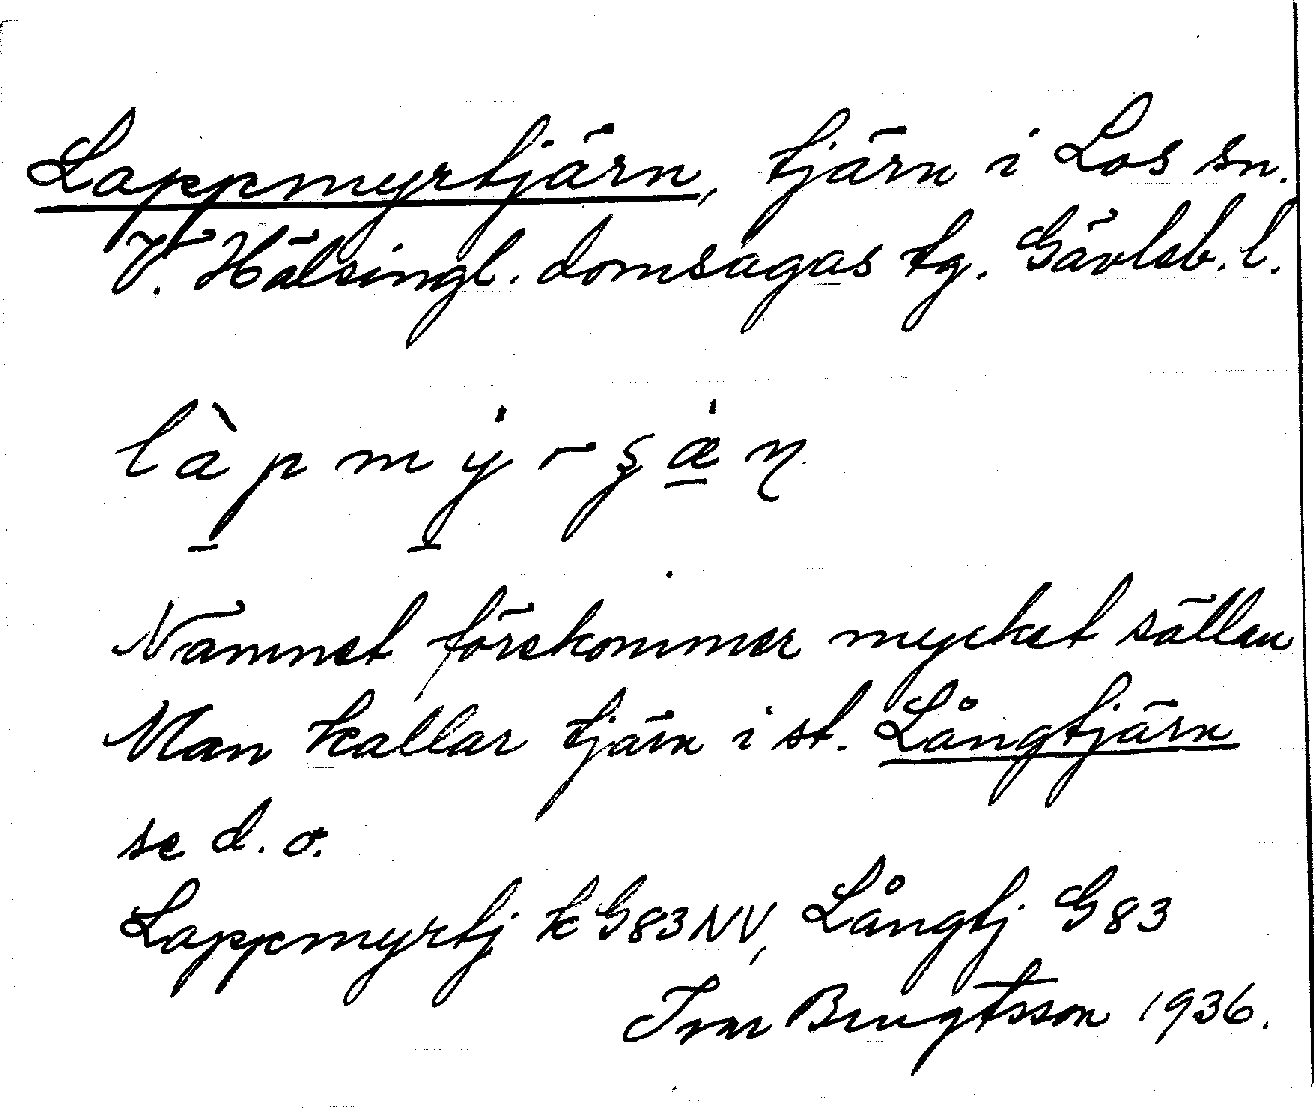 Lappmyrtjärn, tjärn i Los sn.
V. Hälsingl. domsagas tg. Gävleb. l.
làpmy̍rʂæ̍ɳ
Namnet förekommer mycket sällan
Man kallar tjärn i st. Långtjärn
se d. o.
Lappmyrtj k G83NV, Långtj G83
Ivar Bengtsson 1936.